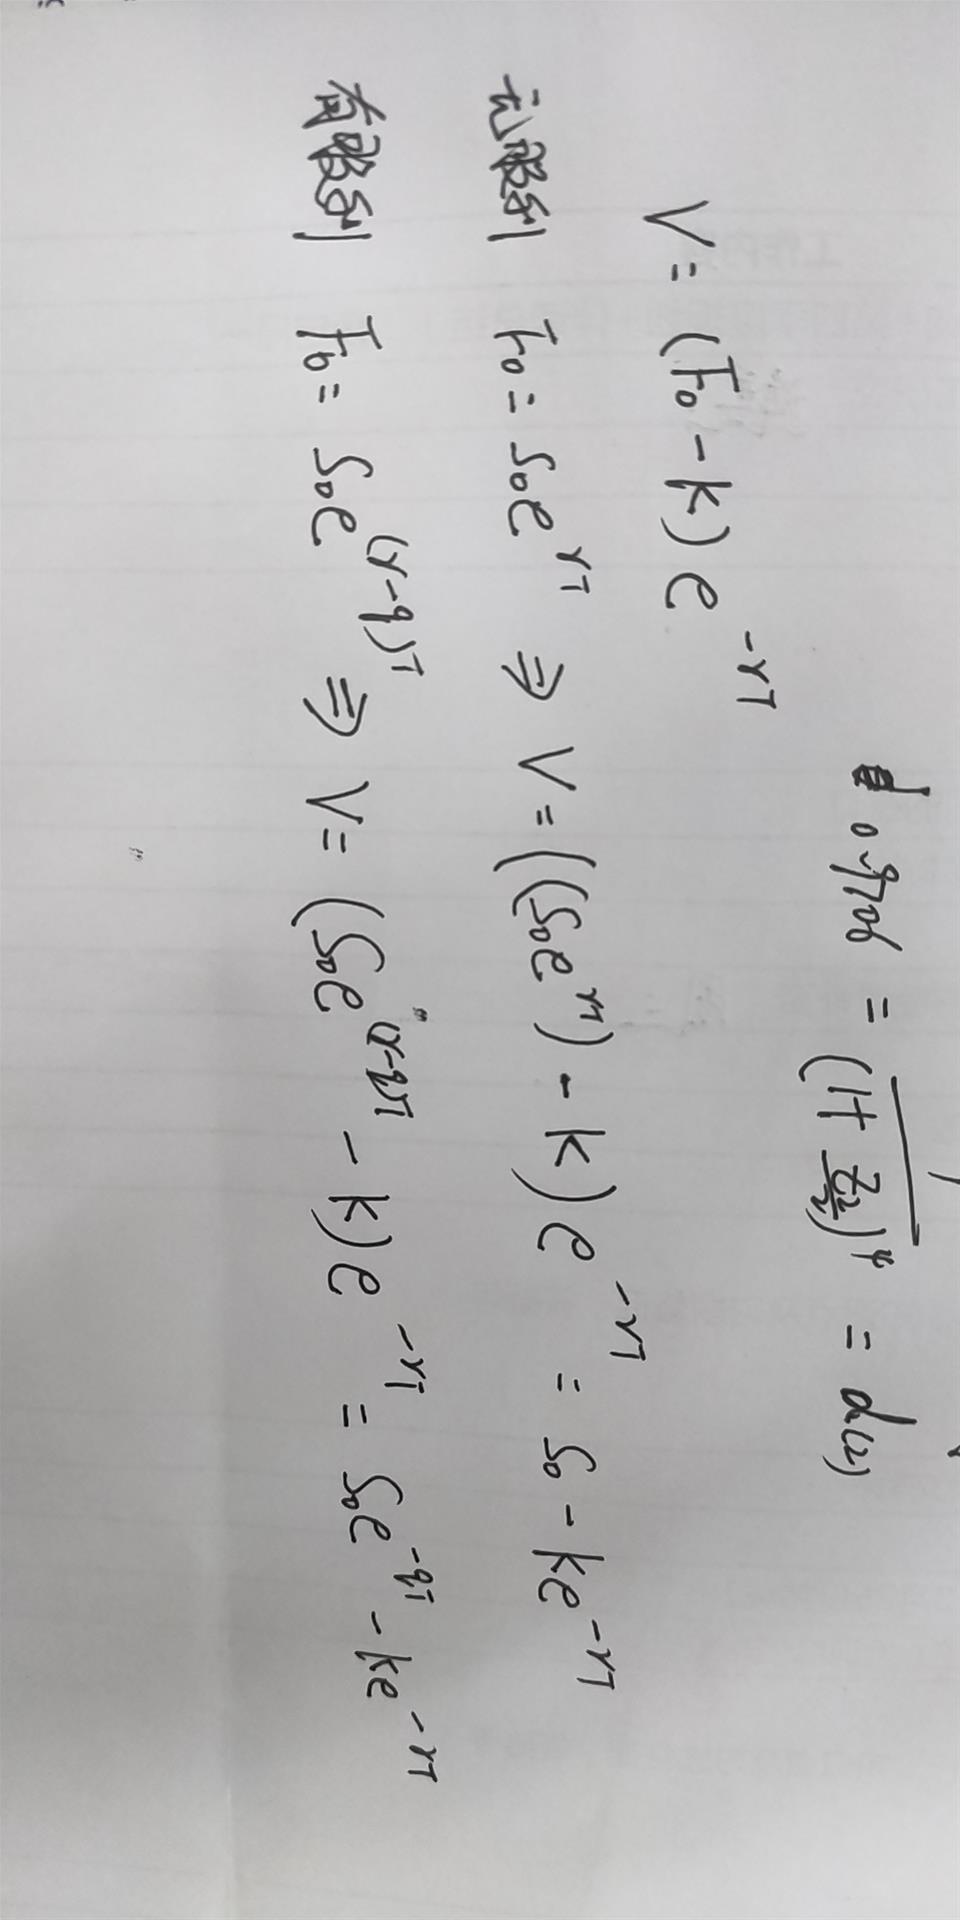 0.9708 = 1/(1+Z2/2)^4 = d(2)
V = (F0 - k) e^-rT
无股利 F0 = S0e^rT ⇒ V = ((S0e^rT) - k) e^-rT = S0 - ke^-rT
有股利 F0 = S0e^(r-q)T ⇒ V = (S0e^(r-q)T - k) e^-rT = S0e^-qT - ke^-rT